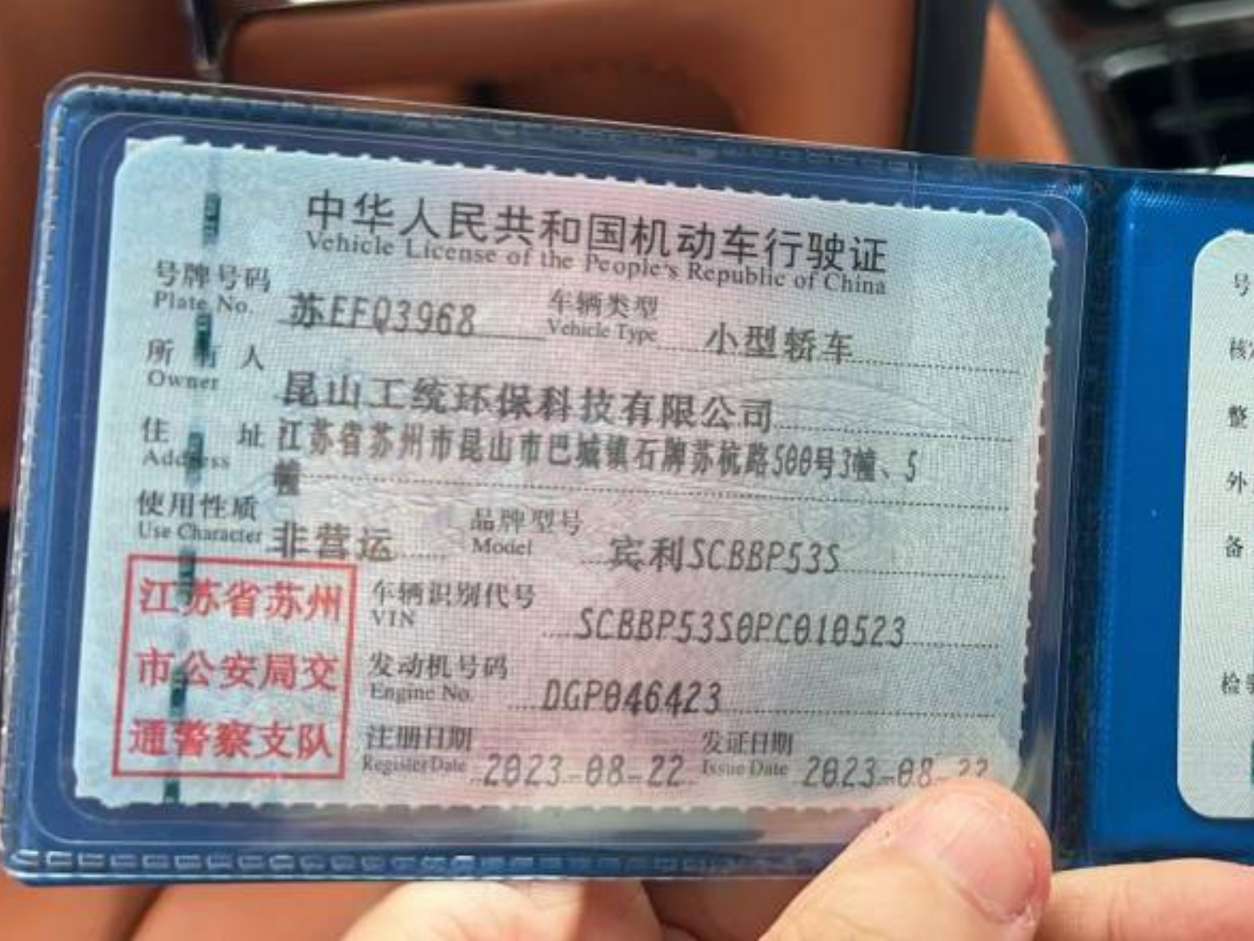 中华人民共和国机动车行驶证
Vehicle License of the People's Republic of China
号牌号码 苏EFQ3968 车辆类型 小型轿车
Plate No. Vehicle Type
所有人 昆山工统环保科技有限公司
Owner
住址 江苏省苏州市昆山市巴城镇石牌苏杭路500号3幢、5
Address 幢
使用性质 非营运 品牌型号 宾利SCBBP53S
Use Character Model
江苏省苏州
市公安局交
通警察支队
车辆识别代号 SCBBP53S0PC010523
VIN
发动机号码 DGP046423
Engine No.
注册日期 2023-08-22 发证日期 2023-08-22
Register Date Issue Date
号
核
整
外
备
检